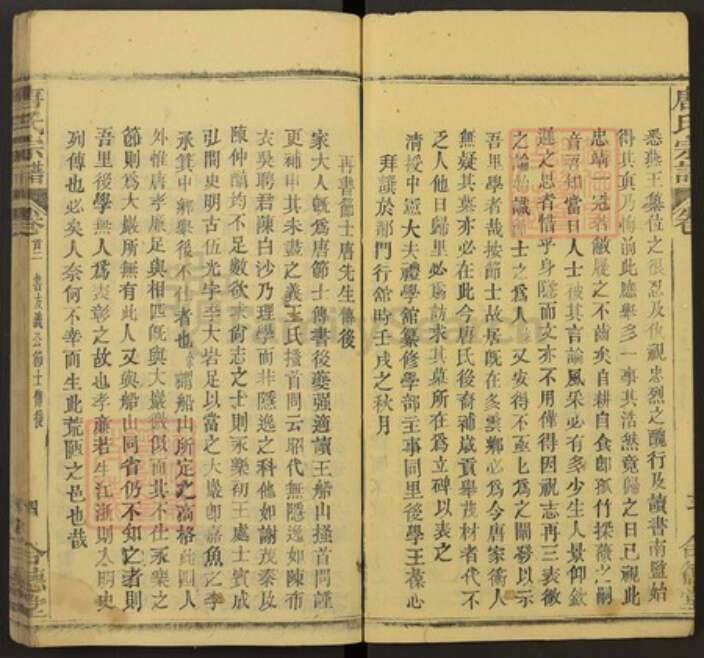 悉燕王纂位之很忍及仇視忠烈之醜行及讀書南監始
得其真乃悔前此應舉多一事其浩然竟歸之日已視此
忠靖一冠若敝屣之不齒矣自耕自食卽孤竹採薇之嗣
音吾知當日人士被其言論風采必有多少生人景仰欽
遲之思者惜乎身隱而文亦不用僅得因視志再三表微
之論始識傳士之爲人 又安得不亟上爲之闡發以示
吾里學者哉按節士故居旣在多雲鄉必爲今唐家衞人
無疑其葬亦必在此今唐氏後裔補歲貢舉茂材者代不
乏人他日歸里必為訪求其墓所在爲立碑以表之
清授中憲大夫禮學館纂修學部主事同里後學王葆心
拜譔於都門行館時壬戌之秋月
再書節士唐先生傳後
家大人旣爲唐節士傳書後夔强適讀王船山掻首問謹
更補申其未盡之義王氏掻首問云昭代無隱逸如陳布
衣吳聘君陳白沙乃理學而非隱逸之科他如謝茂秦及
陳仲醇均不足數欲求尚志之士則永樂初王處士賓成
弘間史明古伍光宇至大岩足以當之大巖卽嘉魚之李
承箕中鄉舉後不仕者也 船山所定之高格此四人
外惟唐孝廉足與相匹旣與大巖微似而其不仕永樂之
節則爲大巖所無有此人又與船山同省仍不知之者則
吾里後學無人爲表彰之故也孝廉若生江浙則入明史
列傳也必矣人奈何不幸而生此荒陋之邑也哉
唐氏宗譜
卷首二
書友義公節士傳後
四
合德堂